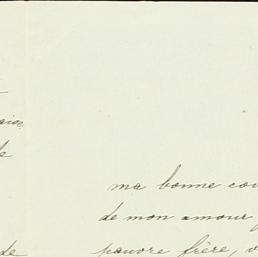 ma bonne cou
de mon amour
pauvre frère, v
de